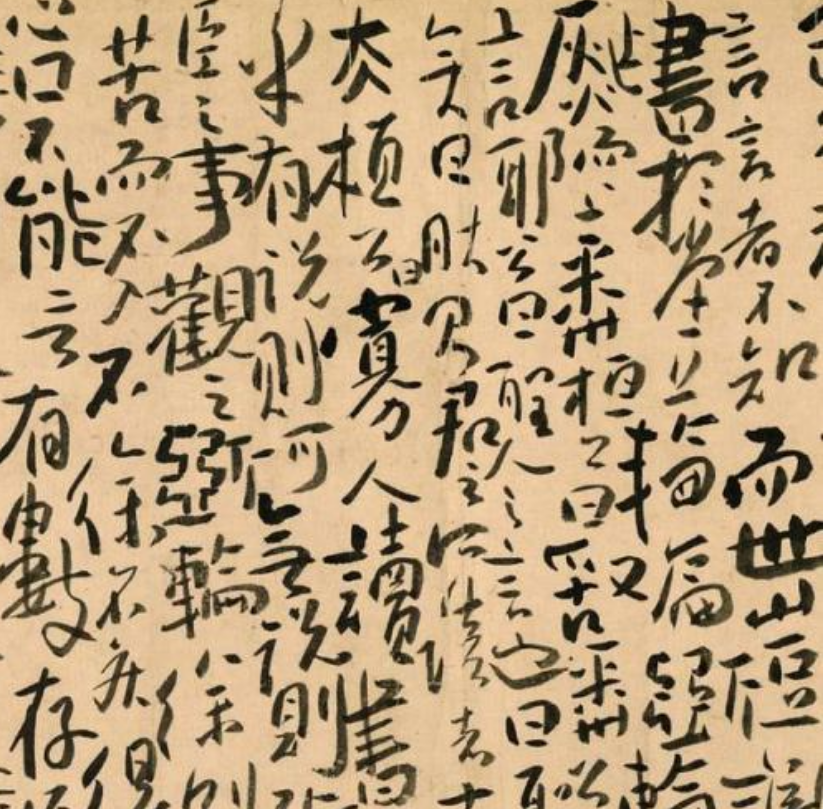 言言者不知而世豈識
書於堂上輪扁斲輪
而上問桓公曰敢問
言耶公曰聖人之言也曰聖
矣曰然則君之所讀者古
夫桓公曰寡人讀書
乎有說則可無說則死
臣之事觀之斲輪徐則
苦而不入不徐不疾得
心口不能言有數存焉